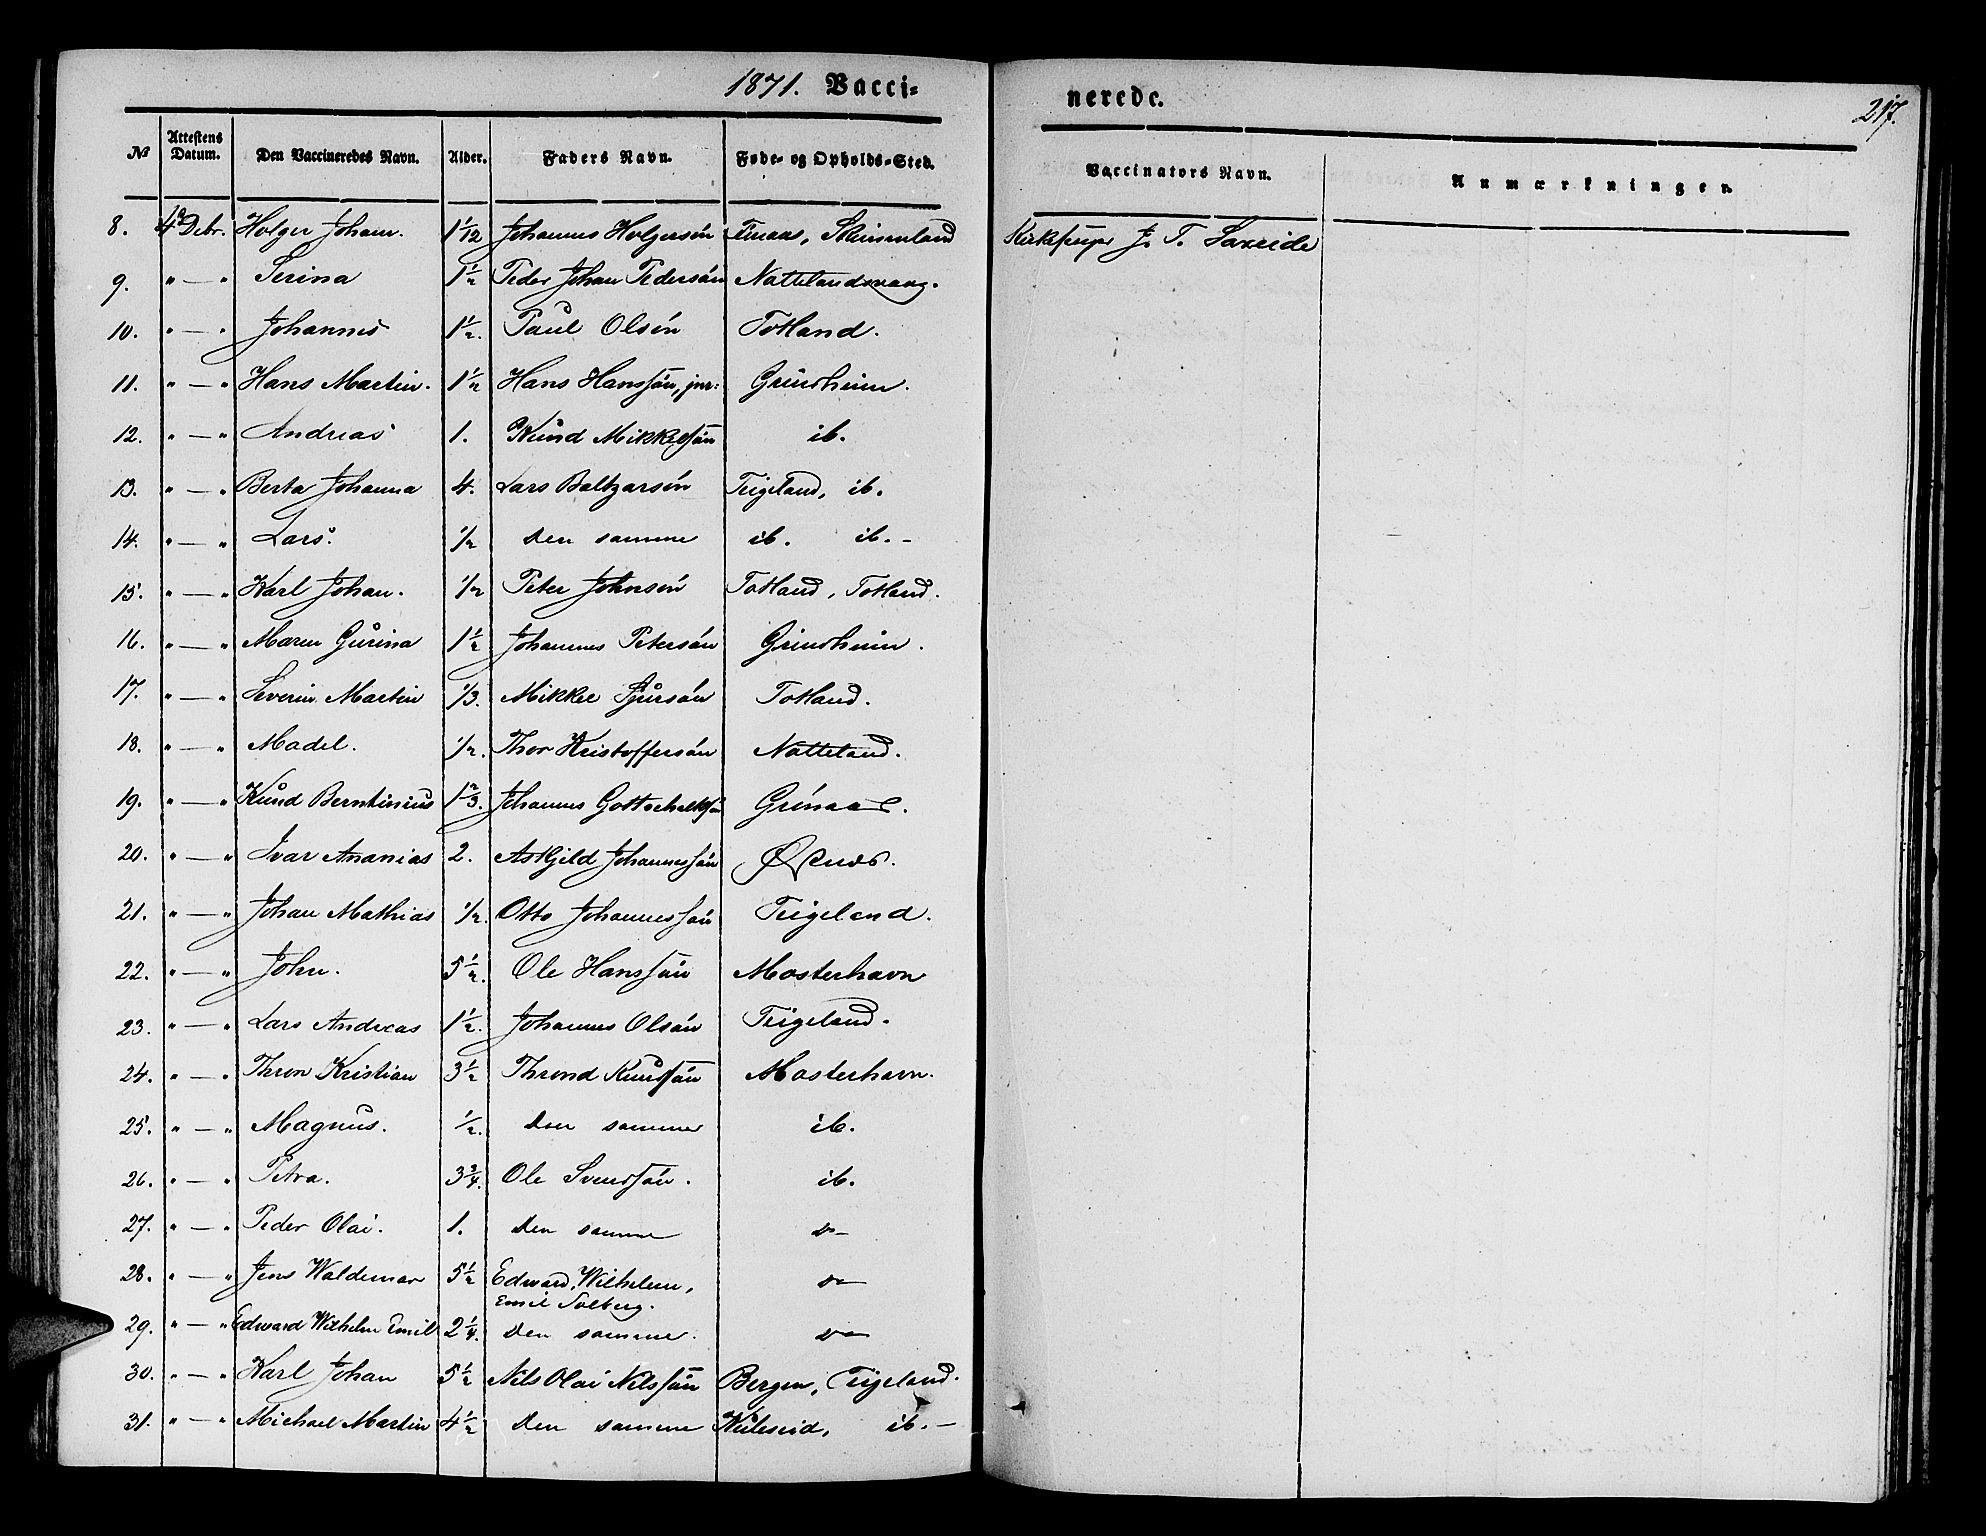 1871. Vacci-
nerede.
217.
No Attestens Datum. Den Vaccineredes Navn. Alder. Faders Navn. Føde- og Opholds-Sted. Vaccinators Navn. Anmærkninger.
8. 4 Debr. Holger Johan. 1 1/12 Johannes Holgersön Kirkesanger J. T.
9. " — " Serina 1 1/2 Peder Johan Pedersön Nattelandsvaag.
10. " — " Johannes 1 1/2. Paul Olsön Totland.
11. " — " Hans Martin. 1 1/2 Hans Hanssön, jnr: Grindheim.
12. " — " Andreas 1. Knud Mikkelsön ib.
13. " — " Berta Johanna 4. Lars Baltzarsön Teigeland, ib.
14. " — " Lars. 1/2 den samme ib. ib. -
15. " — " Karl Johan. 1/2 Peter Johnsön Totland, Totland.
16. " — " Maren Gurina 1 1/2 Johannes Petersön Grindheim.
17. " — " Severin Martin 1/3. Mikkel Sjursön Totland.
18. " — " Madel. 1/2. Thor Kristoffersön Natteland.
19. " — " Knud Berntinius 1 2/3. Johannes Gottschalksön Grönaas.
20. " — " Ivar Ananias 2. Askjeld Johannessön
21. " — " Johan Mathias 1/2. Otto Johannessön Teigeland.
22. " — " John. 5 1/2. Ole Hanssön Mosterhavn
23. " — " Lars Andreas 1 1/2. Johannes Olsön Teigeland.
24. " — " Thron Kristian 3 1/2 Thrond Knudssön Mosterhavn.
25. " — " Magnus. 1/2. den samme ib.
26. " — " Petra. 3 3/4. Ole Svendsön. ib.
27. " — " Peder Olai. 1. den samme
28. " — " Jens Waldemar 5 1/2 Edward, Wilhelm,
Emil Solberg.
29. " — " Edward Wilhelm Emil 2 1/4. den samme.
30. " — " Karl Johan 5 1/2 Nils Olai Nilssön Bergen, Teigeland.
31. " — " Michael Martin 4 1/2 den samme Kuleseid, ib. —